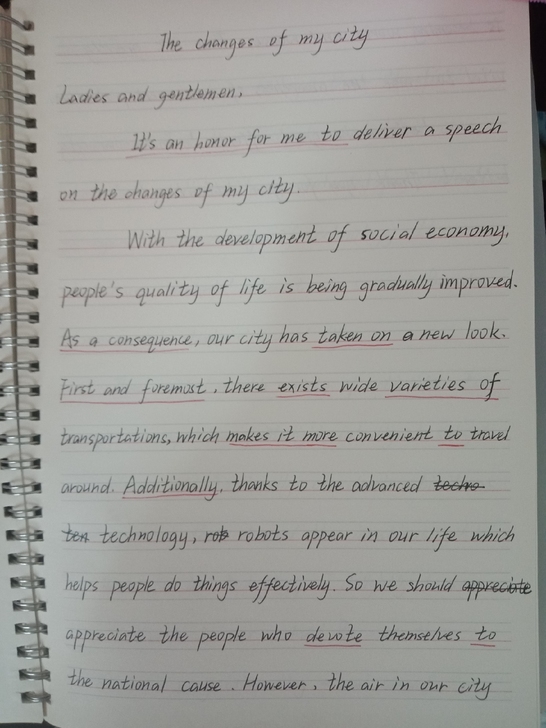 The changes of my city
Ladies and gentlemen,
It's an honor for me to deliver a speech
on the changes of my city.
With the development of social economy,
people's quality of life is being gradually improved.
As a consequence, our city has taken on a new look.
First and foremost, there exists wide varieties of
transportations, which makes it more convenient to travel
around. Additionally, thanks to the advanced techno
ten technology, rob robots appear in our life which
helps people do things effectively. So we should appreciate
appreciate the people who devote themselves to
the national cause. However, the air in our city